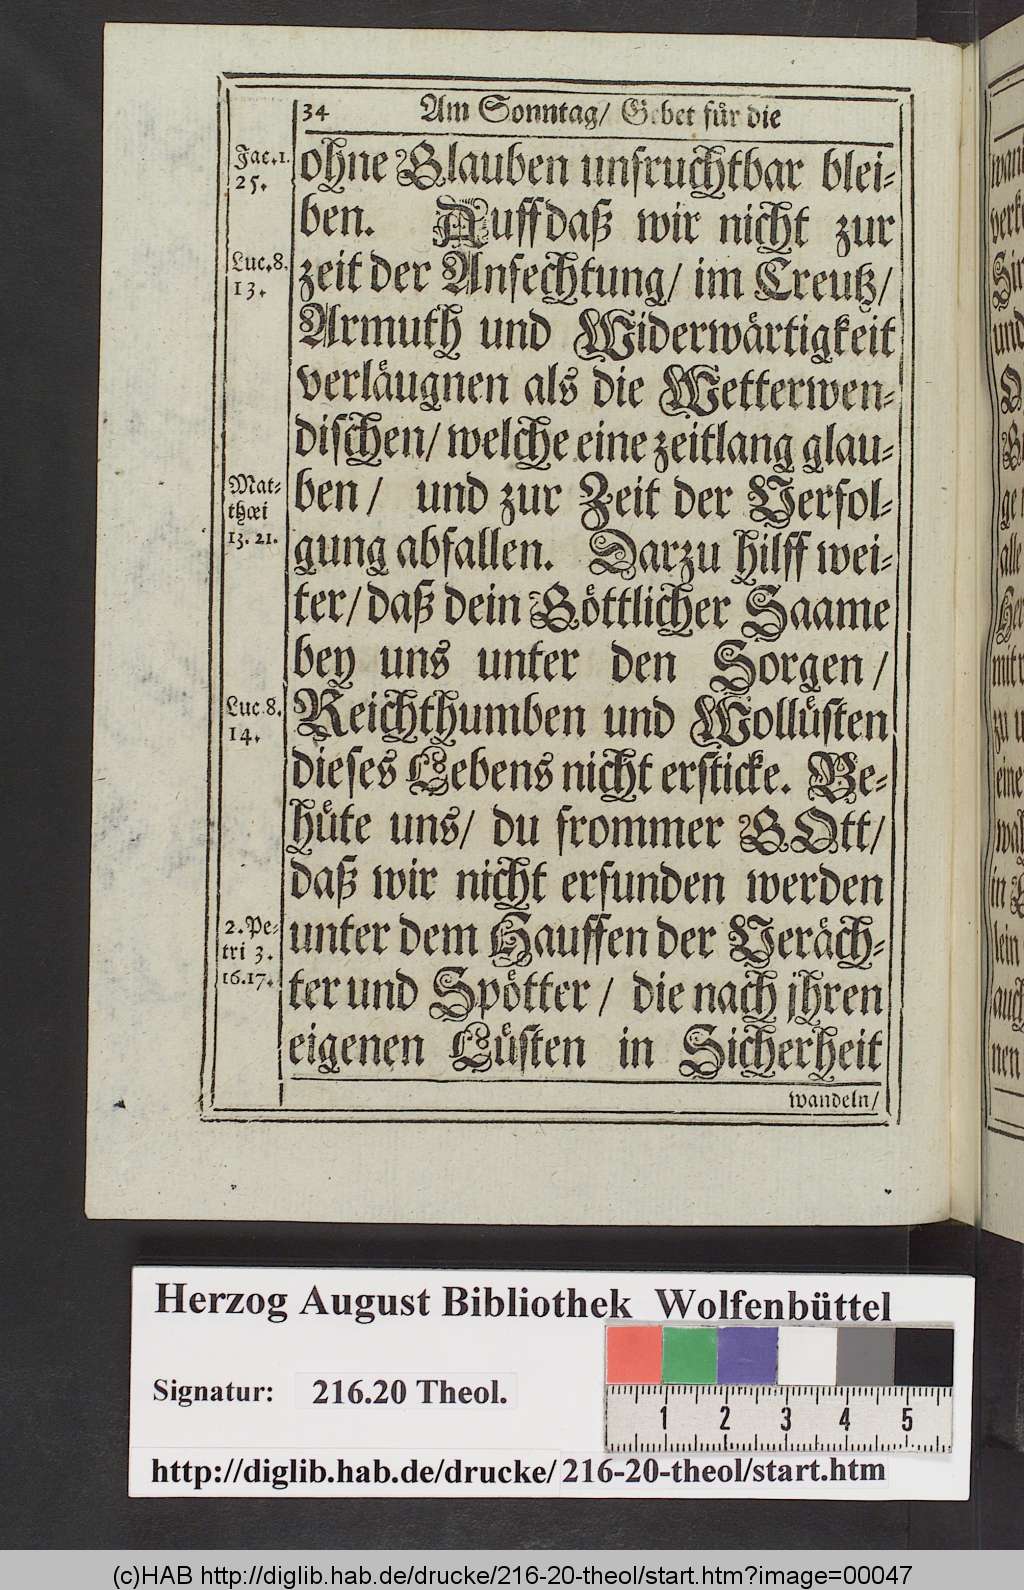 34 Am Sonntag/ Gebet für die
Jac. 1.
25.
ohne Glauben unfruchtbar blei-
ben. Auff daß wir nicht zur
Luc. 8.
13.
zeit der Anfechtung/ im Creutz/
Armuth und Widerwärtigkeit
verläugnen als die Wetterwen-
dischen/ welche eine zeitlang glau-
Mat-
thæi
13. 21.
ben/ und zur Zeit der Verfol-
gung abfallen. Darzu hilff wei-
ter/ daß dein Göttlicher Saame
bey uns unter den Sorgen/
Luc. 8.
14.
Reichthumben und Wollüsten
dieses Lebens nicht ersticke. Be-
hüte uns/ du frommer GOtt/
daß wir nicht erfunden werden
2. Pe-
tri 3.
16. 17.
unter dem Hauffen der Veräch-
ter und Spötter/ die nach jhren
eigenen Lüsten in Sicherheit
wandeln/
Herzog August Bibliothek Wolfenbüttel
Signatur: 216.20 Theol.
1 2 3 4 5
http://diglib.hab.de/drucke/216-20-theol/start.htm
(c)HAB http://diglib.hab.de/drucke/216-20-theol/start.htm?image=00047